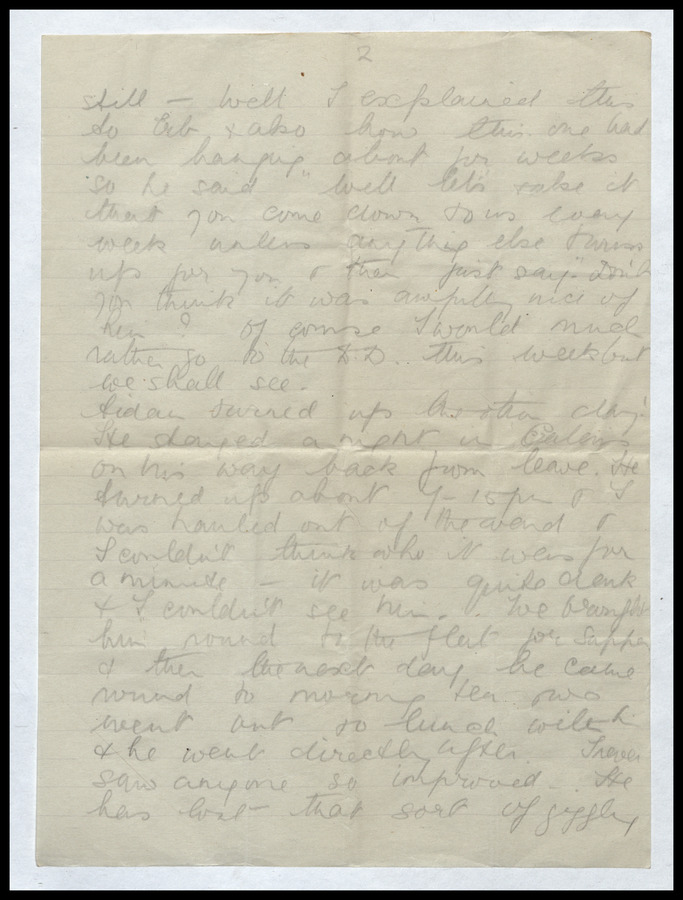 2
still — Well I explained this
to Erb & also how this one had
been hanging about for weeks
so he said "Well let's take it
that you come down to us every
week unless anything else turns
up for you & then just say." Don't
you think it was awfully nice of
him? Of course I would much
rather go to the D.D. this week but
we shall see.
Aidan turned up the other day!
He stayed a night in Calais
on his way back from leave. He
turned up about 7-15pm & I
was hauled out of the ward &
I couldn't think who it was for
a minute — it was quite dark
& I couldn't see him. We brought
him round to the flat for supper
& then the next day he came
round to morning tea
went out to lunch with
& he went directly after. I never
saw anyone so improved. He
has lost that sort of giggly